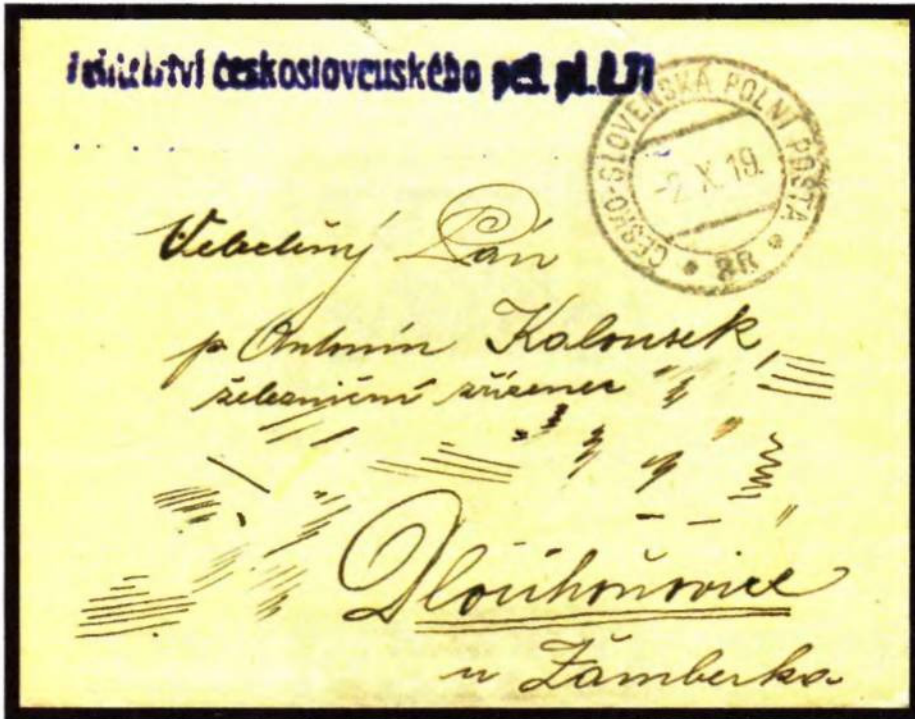 československého peš. pl. č. 71
ČESKO-SLOVENSKÁ POLNÍ POŠTA
-2.X.19.
8R
Velectěný Pán
p Antonín Kalousek,
železniční zřízenec
Dlouhoňovice
u Žamberka